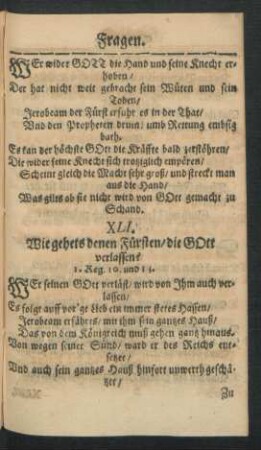 Fragen.
WEr wider GOTT die Hand und seine Knecht er-
hoben/
Der hat nicht weit gebracht sein Wüten und sein
Toben/
Jerobeam der Fürst erfuhr es in der That/
Vnd den Propheten drum/ umb Rettung embsig
bath.
Es kan der höchste GOtt die Kräffte bald zerstöhren/
Die wider seine Knecht sich trotziglich empören/
Scheint gleich die Macht sehr groß/ und streckt man
aus die Hand/
Was gilts ob sie nicht wird von GOtt gemacht zu
Schand.
XLI.
Wie gehets denen Fürsten/ die GOtt
verlassen/
1. Reg. 10. und 11.
WEr seinen GOtt verläst/ wird von Ihm auch ver-
lassen/
Es folgt auff vor'ge Lieb ein immer stetes Hassen/
Jerobeam erfährts/ mit ihm sein gantzes Hauß/
Das von dem Königreich muß gehen gantz hinaus.
Von wegen seiner Sünd/ ward er des Reichs ent-
setzet/
Und auch sein gantzes Hauß hinfort unwerth geschä-
tzet/
Zu